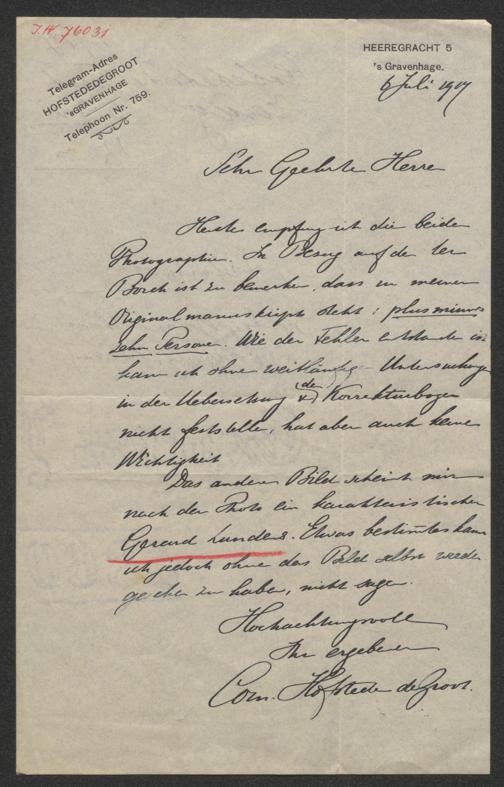 J.N. 76031
Telegram-Adres
HOFSTEDEDEGROOT
'sGRAVENHAGE
Telephoon Nr. 759.
HEEREGRACHT 5
's Gravenhage,
6 Juli 1917
Sehr Geehrte Herrn
Heute empfing ich die beiden
Photographien. In Bezug auf den ter
Borch ist zu bemerken, dass in meinem
Originalmanuskript steht: plus minus
zehn Personen. Wie der Fehler entstanden ist
kann ich ohne weitläufige Untersuchungen
in der Uebersetzung & (den) Korrekturbogen
nicht feststellen, hat aber auch keine
Wichtigkeit
Das andere Bild scheint mir
nach der Photo ein karakteristischer
Gerard Lundens. Etwas bestimtes kann
ich jedoch ohne das Bild selbst wieder
gesehen zu haben, nicht sagen.
Hochachtungsvoll
Ihr ergebener
Corn. Hofstede de Groot.